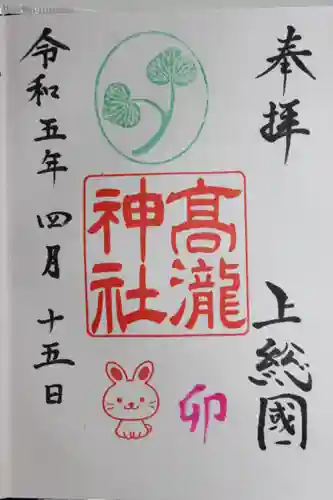 奉拝
上総國
高瀧神社
卯
令和五年 四月 十五日